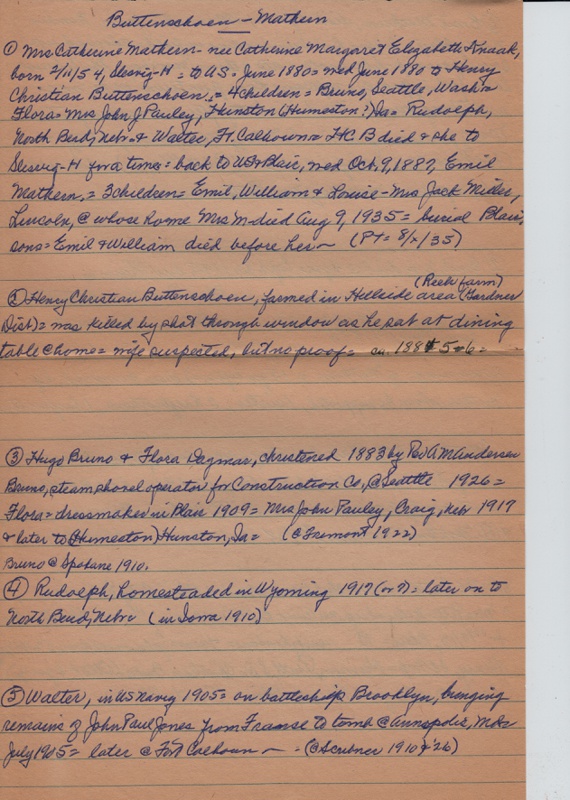 Buttenschoen — Mathern
① Mrs Catherine Mathern - nee Catherine Margaret Elizabeth Knaak,
born 2/11/54, Slesvig-H = to US - June 1880 = wed June 1880 to Henry
Christian Buttenschoen, = 4 children = Bruno, Seattle, Wash =
Flora = Mrs John J Pauley, Hunston (Humeston?) Ia = Rudolph,
North Bend, Nebr. & Walter, Ft. Calhoun = HC B died & she to
Slesvig-H for a time = back to US & Blair, wed Oct. 9, 1887, Emil
Mathern, = 3 children = Emil, William & Louise - Mrs Jack Miller,
Lincoln, @ whose home Mrs M died Aug 9, 1935 = burial Blair,
sons = Emil & William died before her ~ (PT = 8/x/35)
(Reeh farm)
② Henry Christian Buttenschoen, farmed in Hillside area (Gardner
Dist) = was killed by shot through window as he sat at dining
table @ home = wife suspected, but no proof = ca. 1885-6 =
③ Hugo Bruno & Flora Dagmar, christened 1883 by Rev A M Andersen
Bruno, steam shovel operator for Construction Co, @ Seattle 1926 =
Flora = dressmaker in Blair 1909 = Mrs John Pauley, Craig, Nebr 1917
& later to (Humeston) Hunston, Ia = (@ Fremont 1922)
Bruno @ Spokane 1910.
④ Rudolph, homesteaded in Wyoming 1917 (or ?) = later on to
North Bend, Nebr (in Iowa 1910)
⑤ Walter, in US Navy 1905 = on battleship Brooklyn, bringing
remains of John Paul Jones from France to tomb @ Annapolis, Md =
July 1905 = later @ Fort Calhoun ~ - (@ Scribner 1910 & '26)